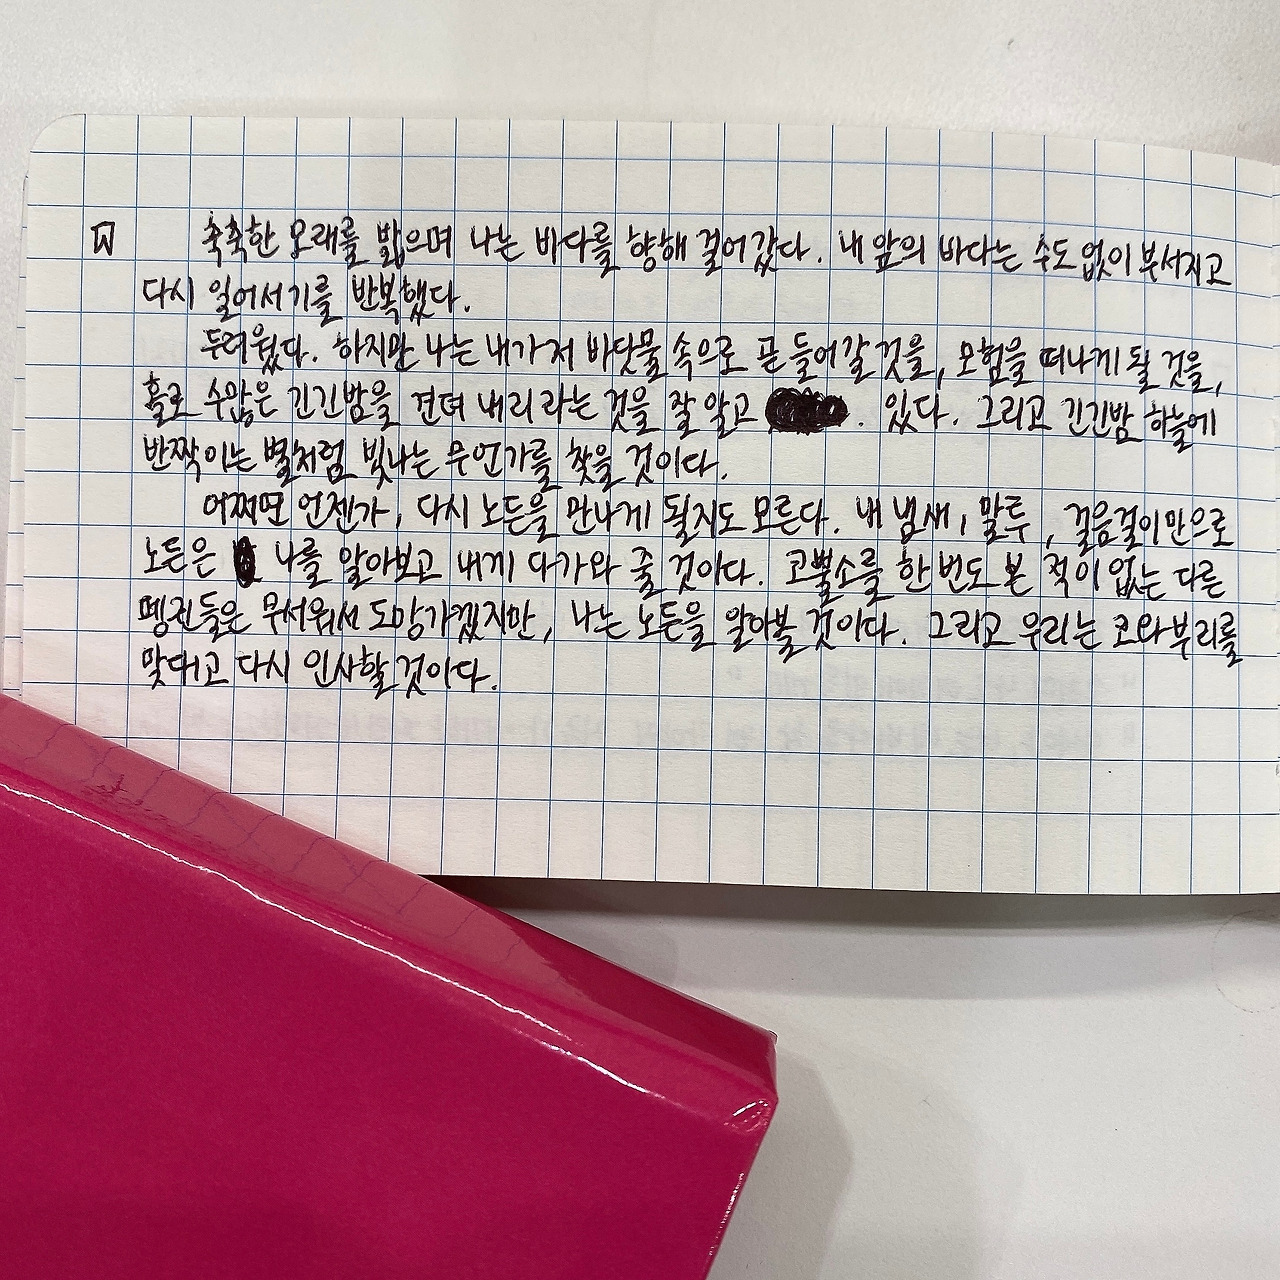 축축한 모래를 밟으며 나는 바다를 향해 걸어갔다. 내 앞의 바다는 수도 없이 부서지고
다시 일어서기를 반복했다.
두려웠다. 하지만 나는 내가 저 바닷물 속으로 곧 들어갈 것을, 모험을 떠나게 될 것을,
홀로 수많은 긴긴밤을 견뎌 내리라는 것을 잘 알고 . 있다. 그리고 긴긴밤 하늘에
반짝이는 별처럼 빛나는 무언가를 찾을 것이다.
어쩌면 언젠가, 다시 노든을 만나게 될지도 모른다. 내 냄새, 말투, 걸음걸이만으로
노든은 나를 알아보고 내게 다가와 줄 것이다. 코뿔소를 한 번도 본 적이 없는 다른
펭귄들은 무서워서 도망가겠지만, 나는 노든을 알아볼 것이다. 그리고 우리는 코와 부리를
맞대고 다시 인사할 것이다.